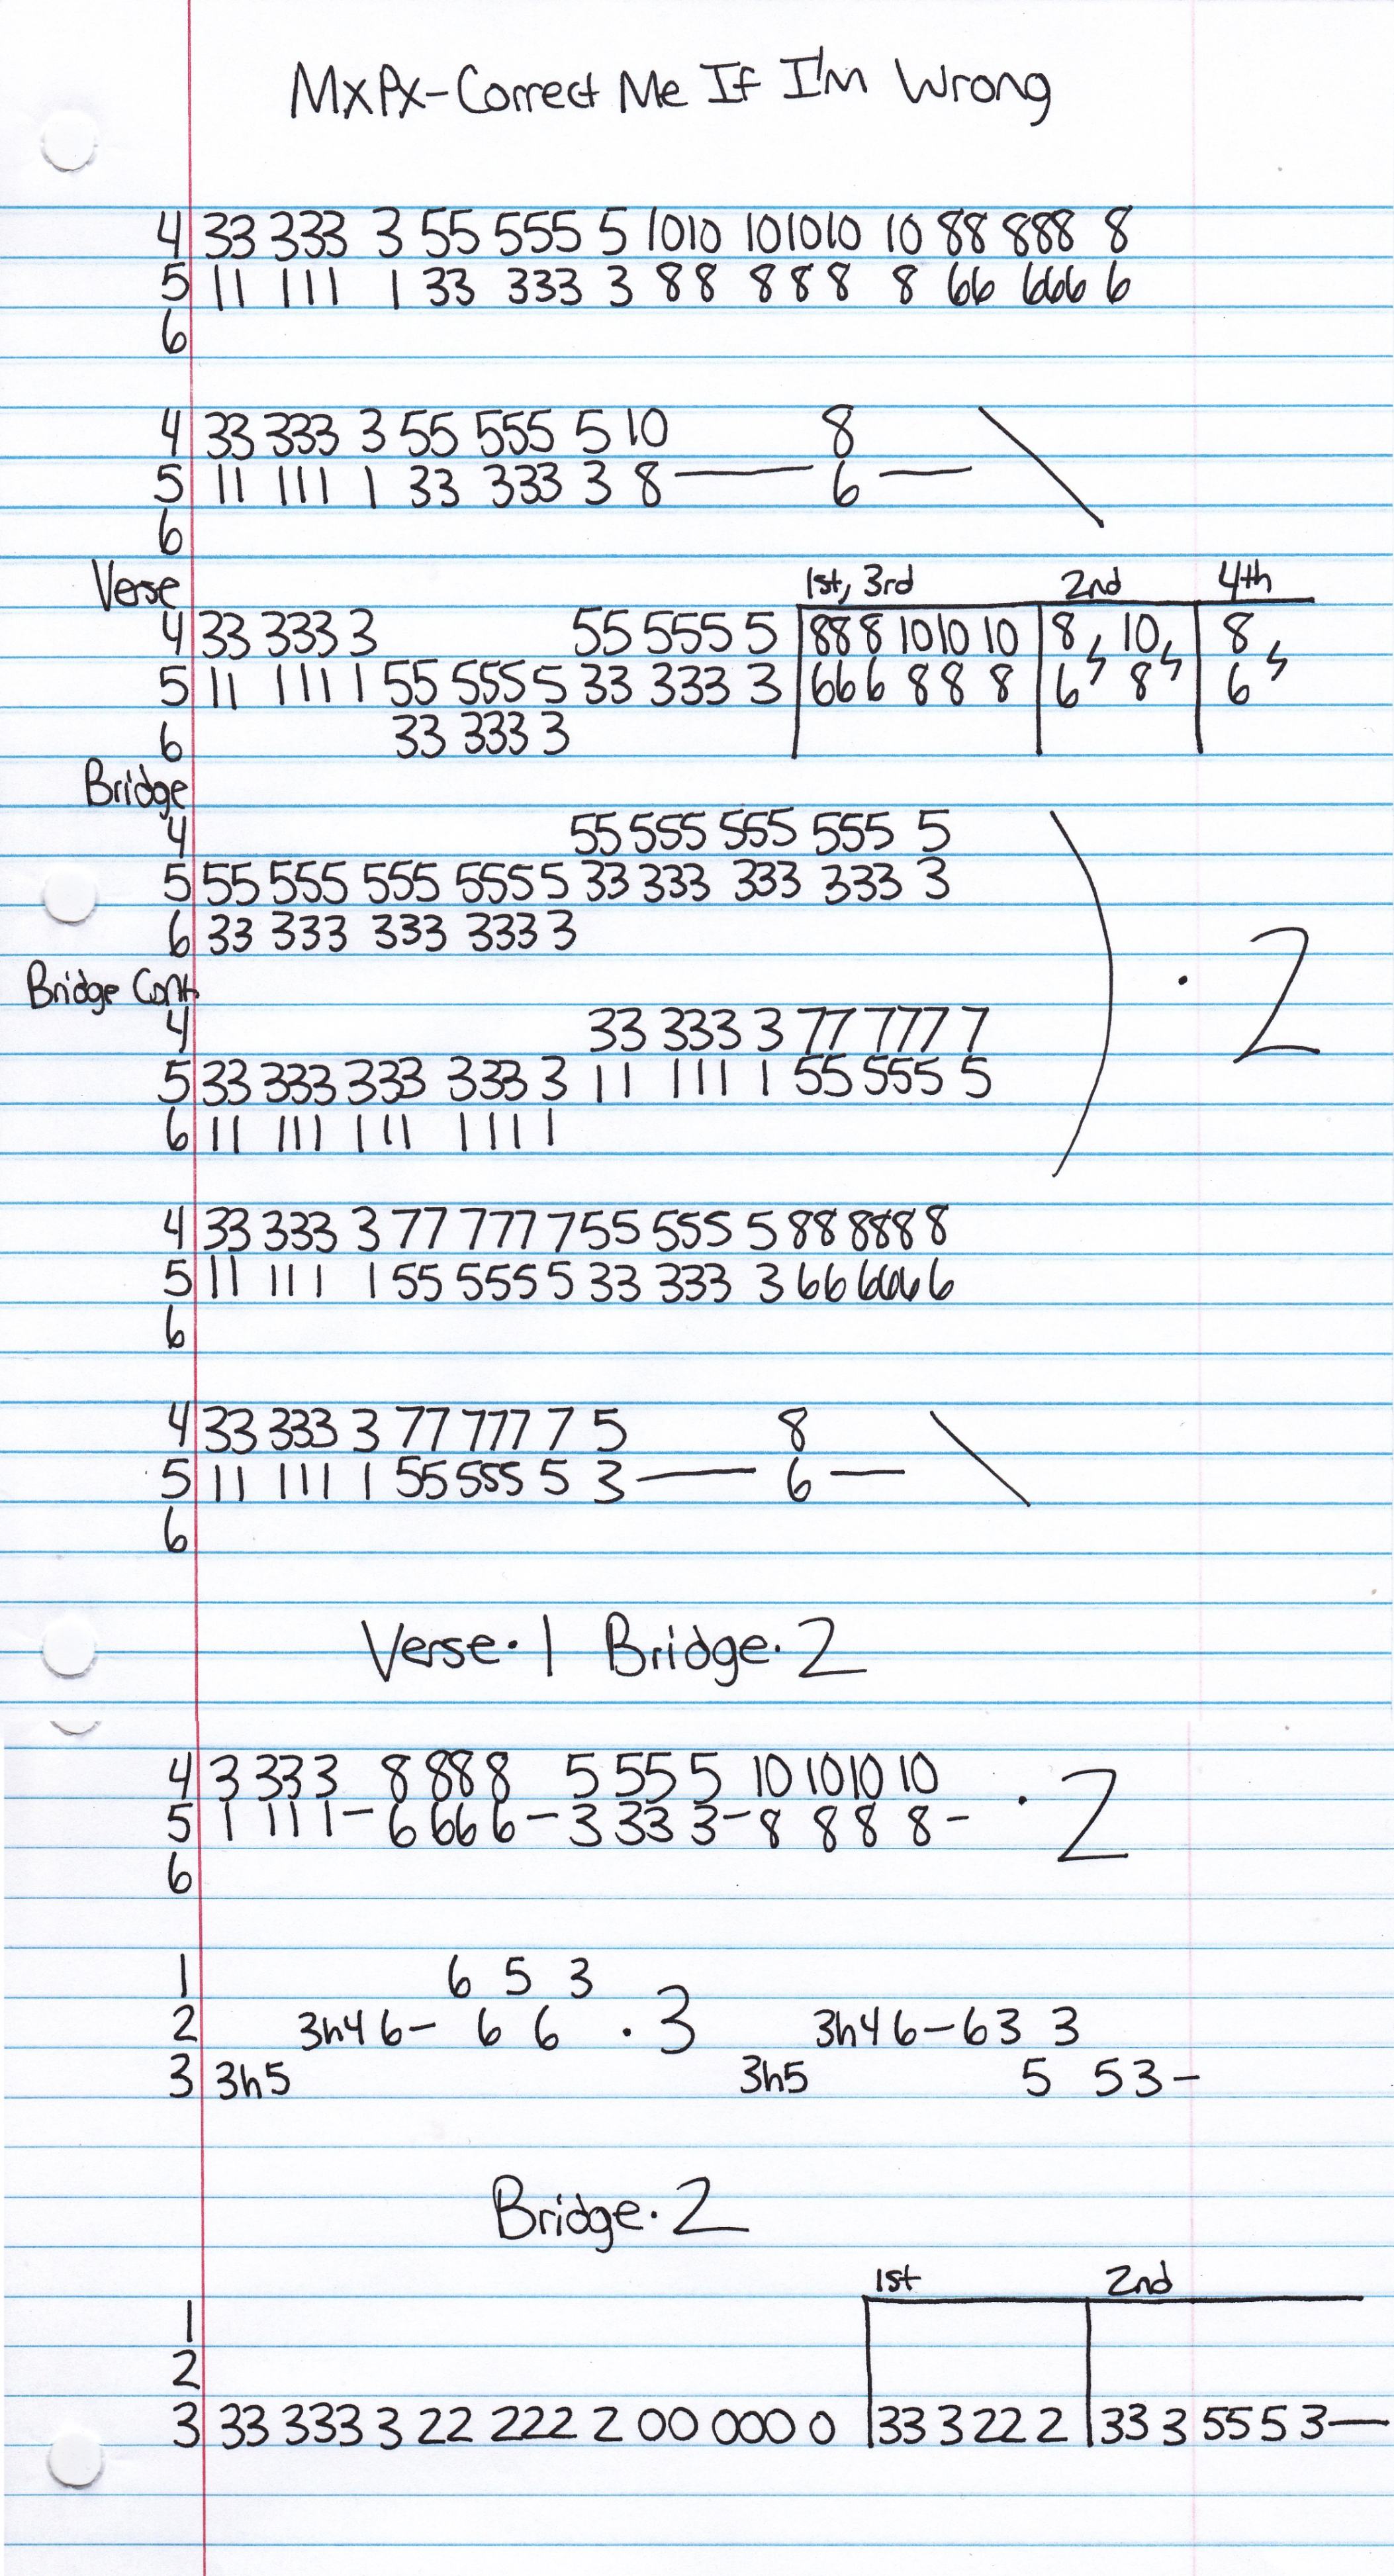 MxPx-Correct Me If I'm Wrong
4 33 333 3 55 555 5 1010 101010 10 88 888 8
5 11 111 1 33 333 3 88 888 8 66 666 6
6
4 33 333 3 55 555 5 10 8
5 11 111 1 33 333 3 8 — 6 —
6
Verse 1st, 3rd 2nd 4th
4 33 333 3 55 555 5 88 8 1010 10 8 10 8
5 11 111 1 55 555 5 33 333 3 66 6 88 8 6 8 6
6 33 333 3
Bridge
4 55 555 555 555 5
5 55 555 555 555 5 33 333 333 333 3
6 33 333 333 333 3
· 2
Bridge Cont.
4 33 333 3 77 777 7
5 33 333 333 333 3 11 111 1 55 555 5
6 11 111 111 111 1
4 33 333 3 77 777 7 55 555 5 88 888 8
5 11 111 1 55 555 5 33 333 3 66 666 6
6
4 33 333 3 77 777 7 5 8
5 11 111 1 55 555 5 3 — 6 —
6
Verse · 1 Bridge · 2
4 3 33 3 8 88 8 5 55 5 10 1010 10 · 2
5 1 11 1 - 6 66 6 - 3 33 3 - 8 8 8 8 -
6
1 6 5 3
2 3h4 6 - 6 6 · 3 3h4 6 - 6 3 3
3 3h5 3h5 5 5 3 -
Bridge · 2
1st 2nd
1
2
3 33 333 3 22 222 2 00 000 0 33 3 22 2 33 3 55 5 3 —